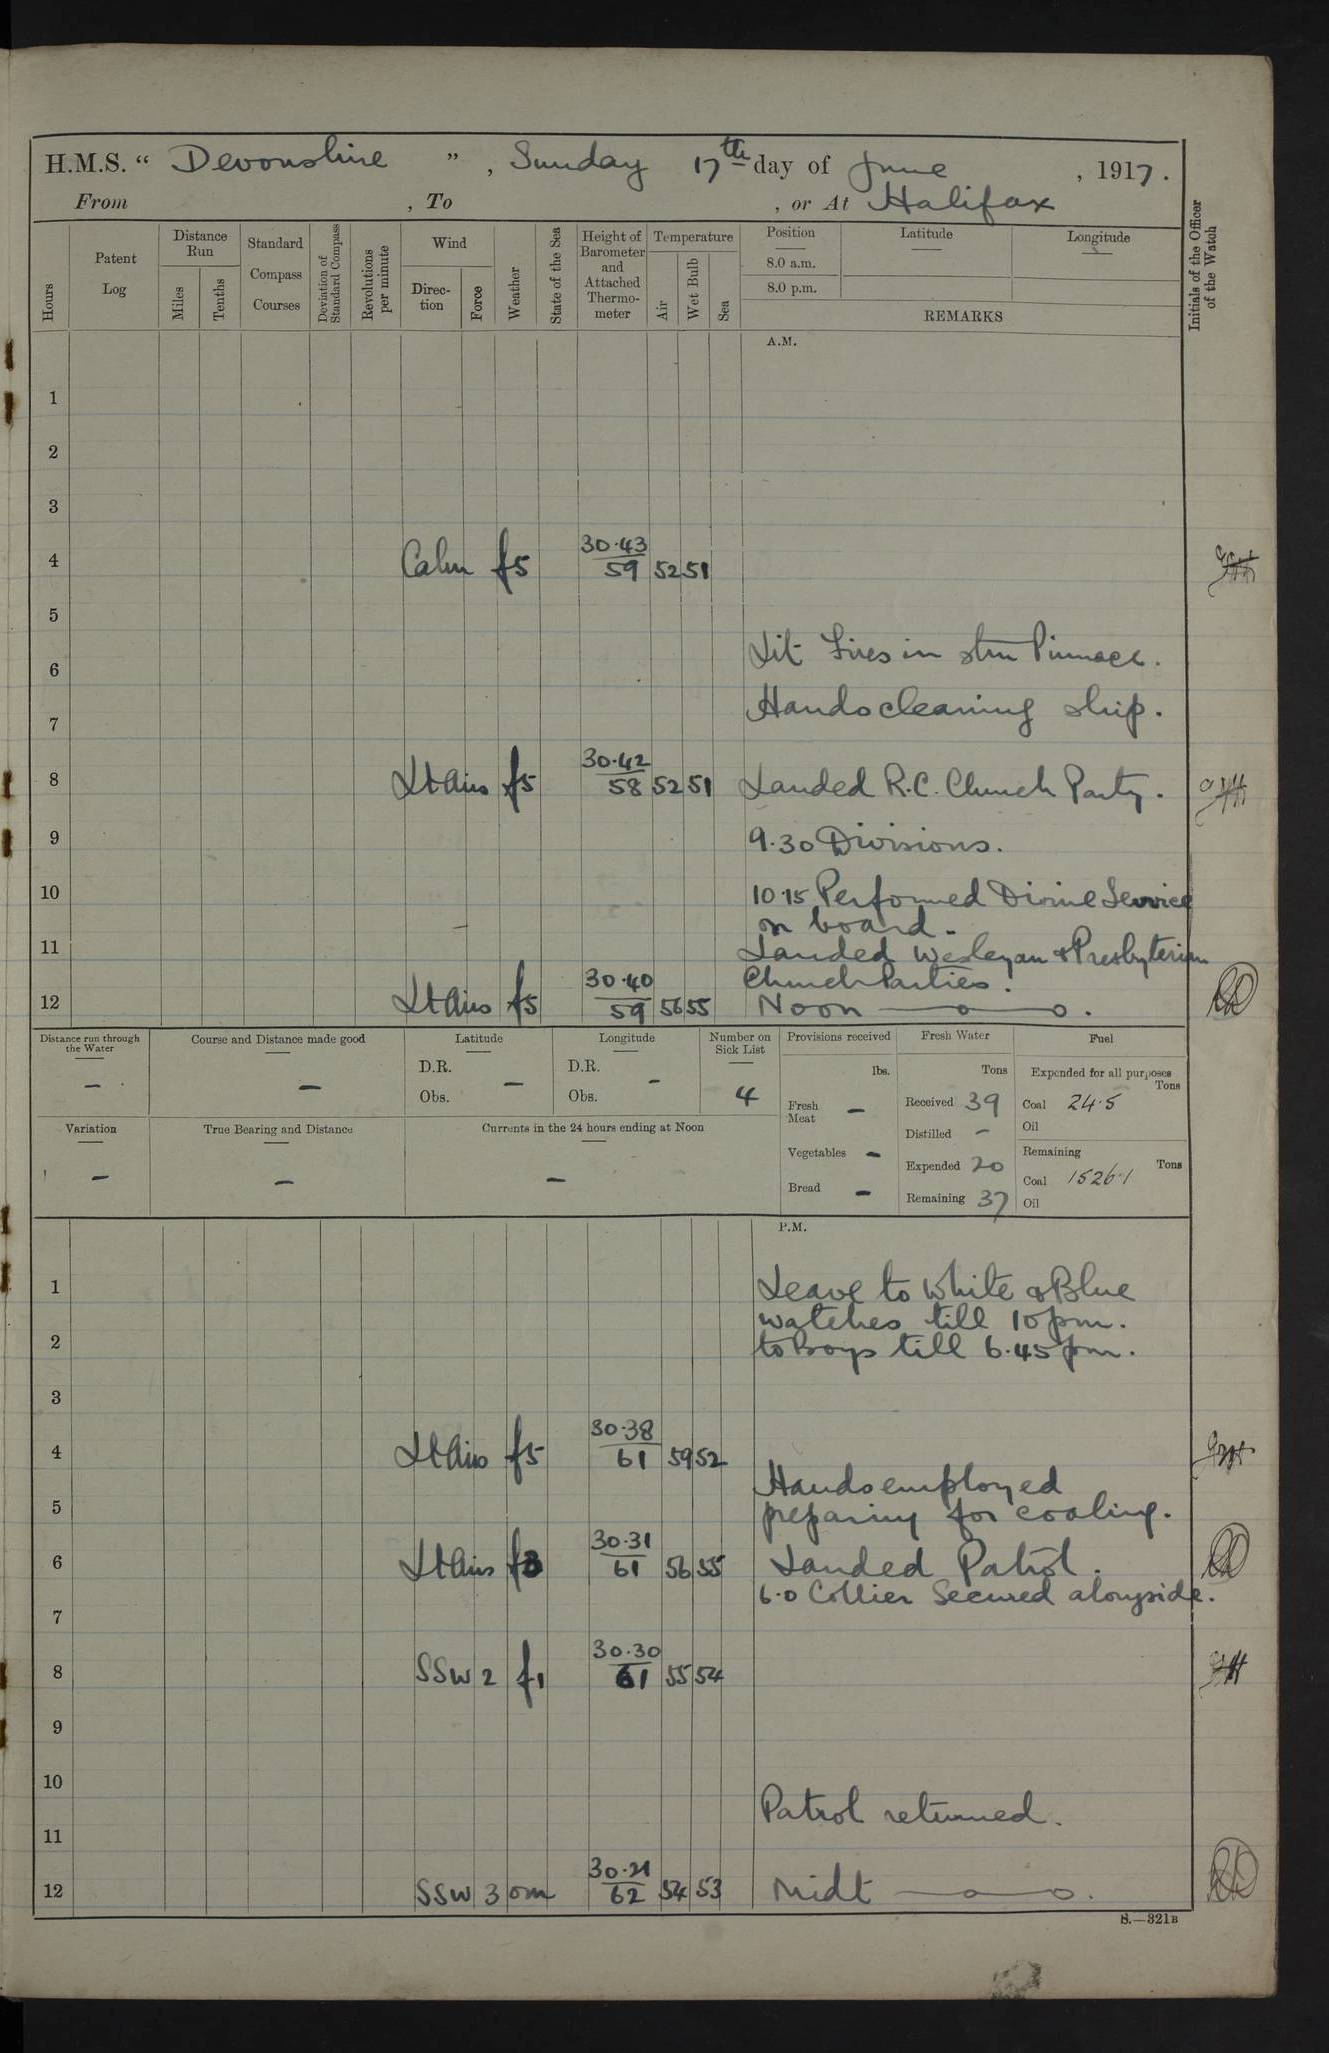 H.M.S. “ Devonshire ” , Sunday 17th day of June , 1917.
From , To , or At Halifax
Hours
Patent Log
Distance Run
Miles
Tenths
Standard Compass Courses
Deviation of Standard Compass
Revolutions per minute
Wind
Direction
Force
Weather
State of the Sea
Height of Barometer and Attached Thermometer
Temperature
Air
Wet Bulb
Sea
Position
Latitude
Longitude
8.0 a.m.
8.0 p.m.
REMARKS
Initials of the Officer of the Watch
A.M.
1
2
3
4 Calm f5 30.43 59 52 51
5
6 Lit Fires in stm Pinnace.
7 Hands cleaning ship.
8 Lt Airs f5 30.42 58 52 51 Landed R.C. Church Party.
9 9.30 Divisions.
10 10.15 Performed Divine Service
on board.
11 Landed Wesleyan & Presbyterian
Church Parties.
12 Lt Airs f5 30.40 59 56 55 Noon —o—o.
Distance run through the Water
—
Course and Distance made good
—
Latitude
D.R. —
Obs.
Longitude
D.R. —
Obs.
Number on Sick List
4
Variation
—
True Bearing and Distance
—
Currents in the 24 hours ending at Noon
—
Provisions received
lbs.
Fresh Meat —
Vegetables —
Bread —
Fresh Water
Tons
Received 39
Distilled —
Expended 20
Remaining 37
Fuel
Expended for all purposes
Tons
Coal 24.5
Oil
Remaining
Tons
Coal 1526.1
Oil
P.M.
1 Leave to White & Blue
watches till 10 pm.
2 to Boys till 6.45 pm.
3
4 Lt Airs f5 30.38 61 59 52
Hands employed
5 preparing for coaling.
6 Lt Airs f3 30.31 61 56 55 Landed Patrol.
6.0 Collier Secured alongside.
7
8 SSW 2 f1 30.30 61 55 54
9
10
Patrol returned.
11
12 SSW 3 om 30.21 62 54 53 Midt —o—o.
S.—321B